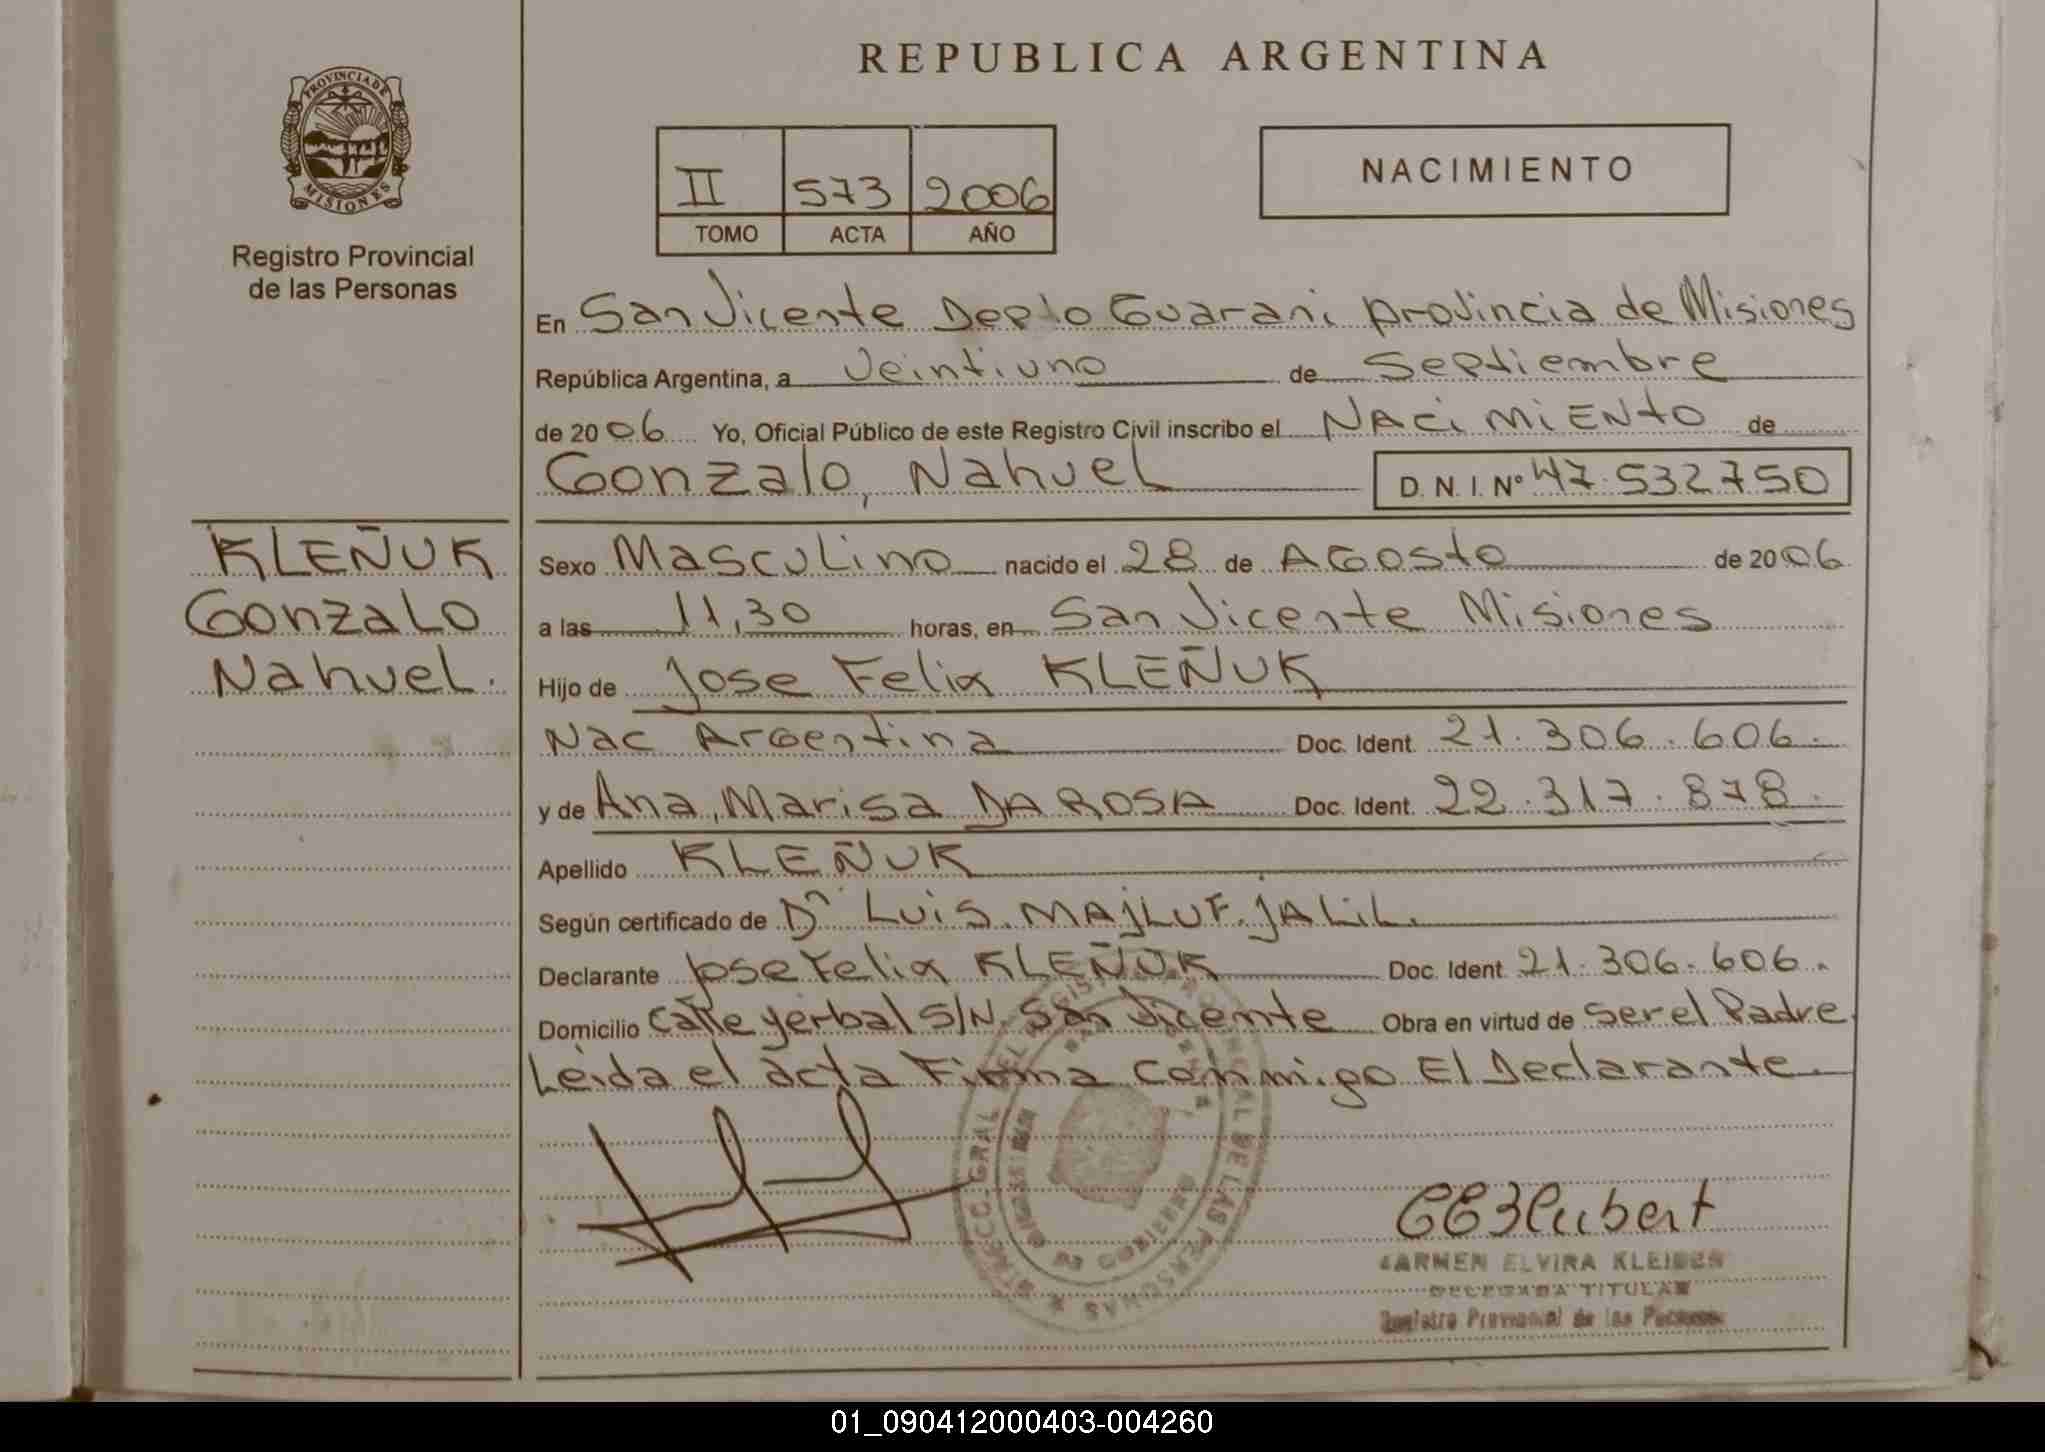 REPUBLICA ARGENTINA
PROVINCIA DE
MISIONES
Registro Provincial
de las Personas
II 573 2006
TOMO ACTA AÑO
NACIMIENTO
En San Vicente Depto Guarani Provincia de Misiones
República Argentina, a Veintiuno de Septiembre
de 2006 Yo, Oficial Público de este Registro Civil inscribo el NACiMiENto de
Gonzalo, Nahuel D. N. I. Nº 47.532750
KLEÑUK
Gonzalo
Nahuel.
Sexo Masculino nacido el 28 de Agosto de 2006
a las 11,30 horas, en San Vicente Misiones
Hijo de Jose Felix KLEÑUK
Nac Argentina Doc. Ident. 21.306.606.
y de Ana, Marisa DA ROSA Doc. Ident. 22.317.878.
Apellido KLEÑUK
Según certificado de Dr Luis. MAjLUF. jALiL.
Declarante Jose Felix KLEÑUK Doc. Ident. 21.306.606.
Domicilio Calle yerbal S/N San Vicente Obra en virtud de Ser el Padre
Leida el acta Firma conmigo El Declarante.
DEL REGISTRO PROVINCIAL DE LAS PERSONAS
CARMEN ELVIRA
DELEGADA TITULAR
Registro Provincial de las Personas
01_090412000403-004260